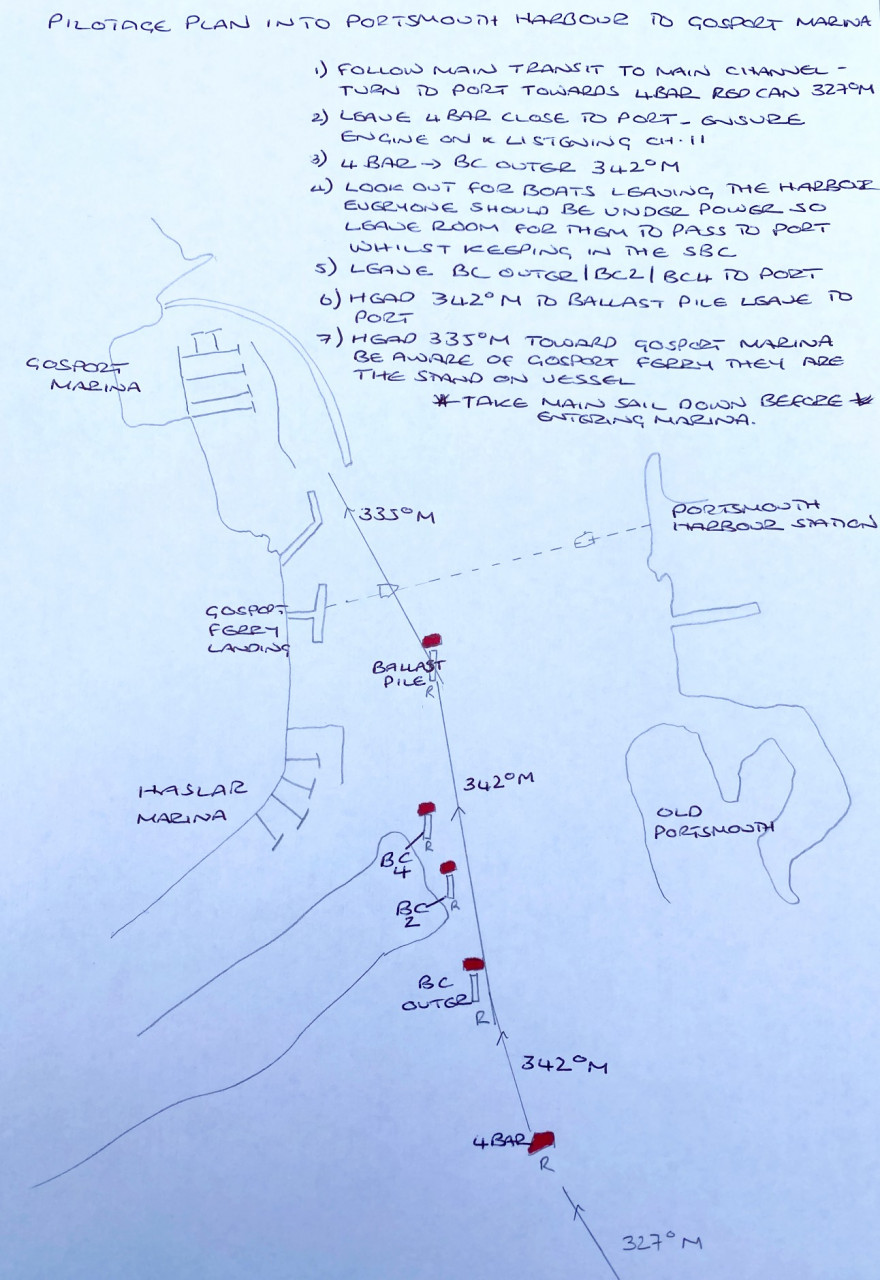 PILOTAGE PLAN INTO PORTSMOUTH HARBOUR TO GOSPORT MARINA
1) FOLLOW MAIN TRANSIT TO MAIN CHANNEL -
TURN TO PORT TOWARDS 4BAR RED CAN 327°M
2) LEAVE 4 BAR CLOSE TO PORT - ENSURE
ENGINE ON & LISTENING CH.11
3) 4 BAR → BC OUTER 342°M
4) LOOK OUT FOR BOATS LEAVING THE HARBOUR
EVERYONE SHOULD BE UNDER POWER SO
LEAVE ROOM FOR THEM TO PASS TO PORT
WHILST KEEPING IN THE SBC
5) LEAVE BC OUTER/BC2/BC4 TO PORT
6) HEAD 342°M TO BALLAST PILE LEAVE TO
PORT
7) HEAD 335°M TOWARD GOSPORT MARINA
BE AWARE OF GOSPORT FERRY THEY ARE
THE STAND ON VESSEL
* TAKE MAIN SAIL DOWN BEFORE *
ENTERING MARINA.
GOSPORT
MARINA
335°M
PORTSMOUTH
HARBOUR STATION
GOSPORT
FERRY
LANDING
BALLAST
PILE
R
342°M
HASLAR
MARINA
OLD
PORTSMOUTH
R
BC
4
R
BC
2
BC
OUTER
R
342°M
4BAR
R
327°M